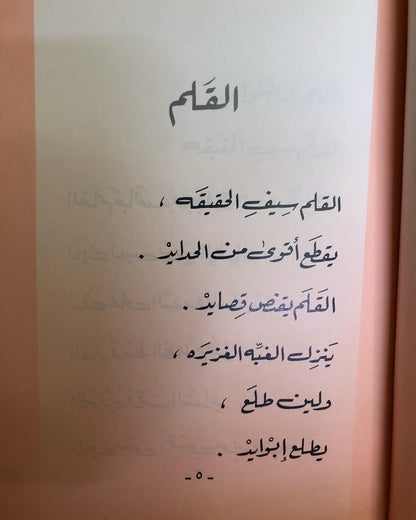 القَلَم
القلم سِيفِ الحقيقَه ،
يقطَع أقوىٰ من الحدايدْ .
القَلَم يقنص قِصايدْ .
يَنزِل الغبّه الغزيرَه ،
ولين طلَعَ ،
يطلع إبْوايدْ .
-٥-